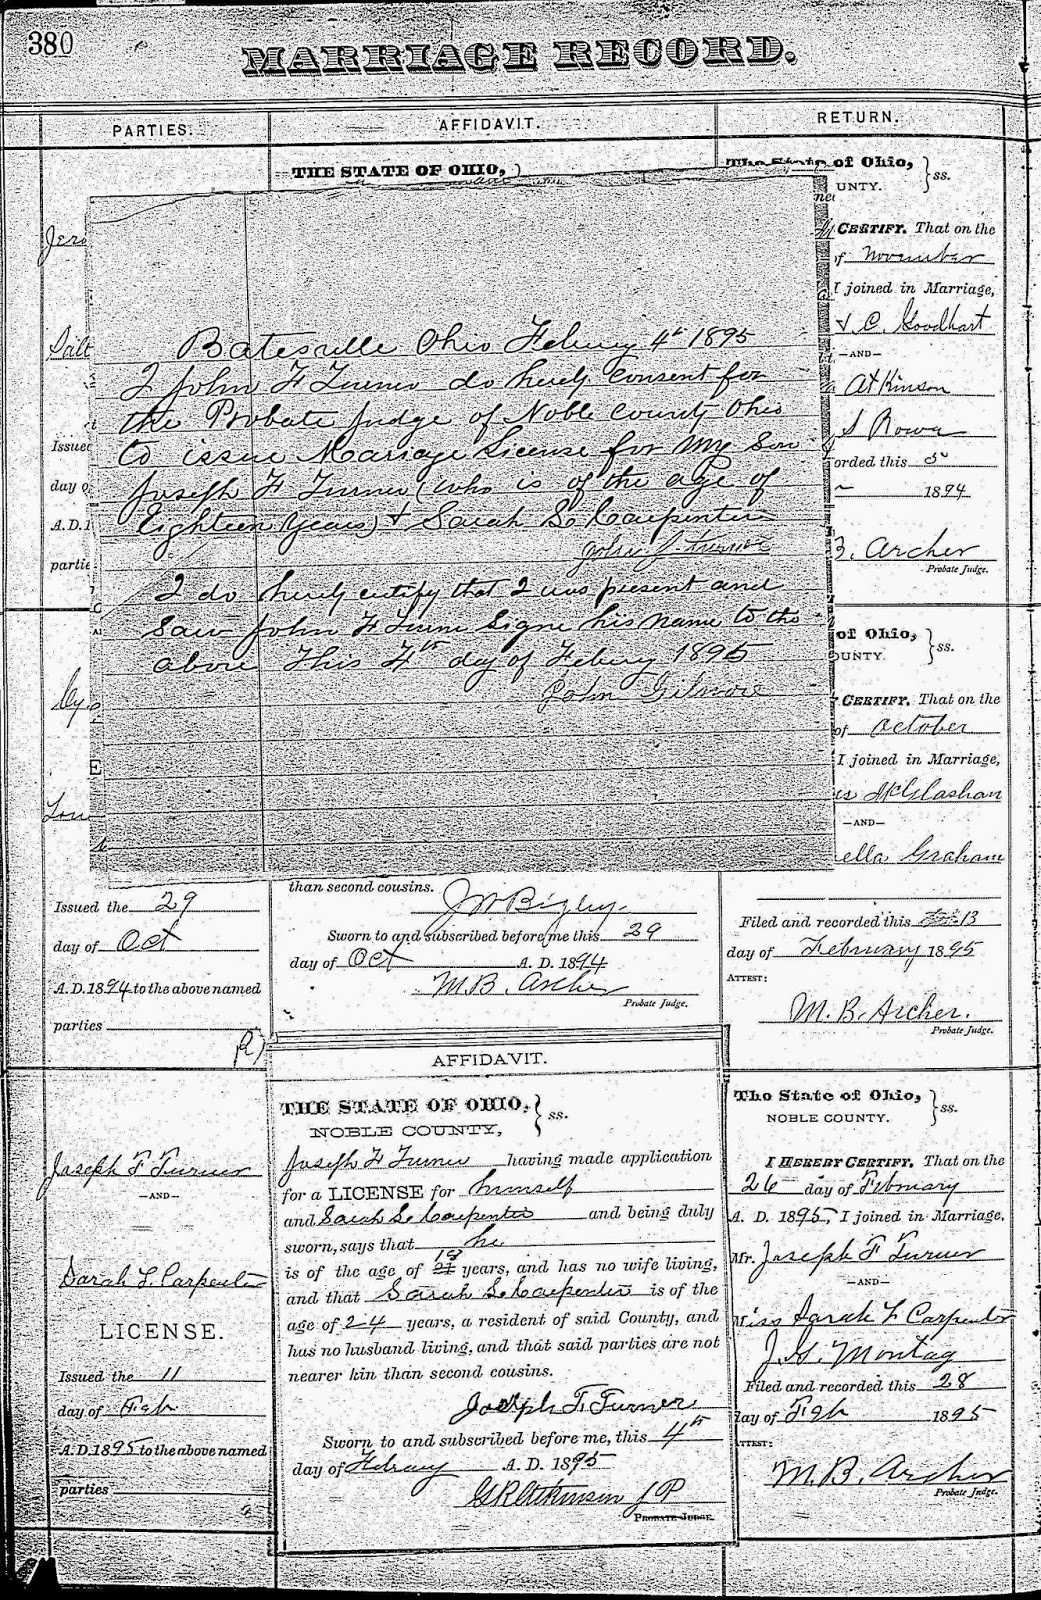 380
MARRIAGE RECORD.
PARTIES.
AFFIDAVIT.
RETURN.
THE STATE OF OHIO, )
The State of Ohio, } ss.
UNTY.
CERTIFY. That on the
of November
I joined in Marriage,
C. Goodhart
—AND—
Atkinson
S Rowe
orded this 5
1894
Archer
Probate Judge.
Jero
Issued
day o
A.D.1
partie
Batesville Ohio Febury 4th 1895
I John F Turner do herely consent for
the Probate Judge of Noble County Ohio
to issue Marriage License for my Son
Joseph F Turner (who is of the age of
Eighteen years) + Sarah L. Carpenter
John F Turner
I do herely certify that I was present and
Saw John F Turne Signe his name to the
above This 4th day of Febury 1895
John Gilmore
of Ohio, } ss.
OUNTY.
CERTIFY. That on the
of October
I joined in Marriage,
McGlashan
—AND—
ella Graham
Filed and recorded this 13
day of February 1895
ATTEST:
M. B. Archer.
Probate Judge.
Issued the 29
day of Oct
A.D. 1894 to the above named
parties
than second cousins.
J W Bigley.
Sworn to and subscribed before me this 29
day of Oct A. D. 1894
M. B. Archer
Probate Judge.
Joseph F Turner
—AND—
Sarah L. Carpenter
LICENSE.
Issued the 11
day of Feb
A.D. 1895 to the above named
parties
AFFIDAVIT.
THE STATE OF OHIO, } ss.
NOBLE COUNTY,
Joseph F Turner having made application
for a LICENSE for himself
and Sarah L. Carpenter and being duly
sworn, says that he
is of the age of 18 years, and has no wife living,
and that Sarah L. Carpenter is of the
age of 24 years, a resident of said County, and
has no husband living, and that said parties are not
nearer kin than second cousins.
Joseph F. Turner
Sworn to and subscribed before me, this 4th
day of Febuary A. D. 1895
G R Atkinson J P
PROBATE JUDGE.
The State of Ohio, } ss.
NOBLE COUNTY.
I HEREBY CERTIFY. That on the
26 day of February
A. D. 1895, I joined in Marriage,
Mr. Joseph F Turner
—AND—
Miss Sarah L Carpenter
J. G. Montag
Filed and recorded this 28
day of Feb 1895
ATTEST:
M. B. Archer
Probate Judge.